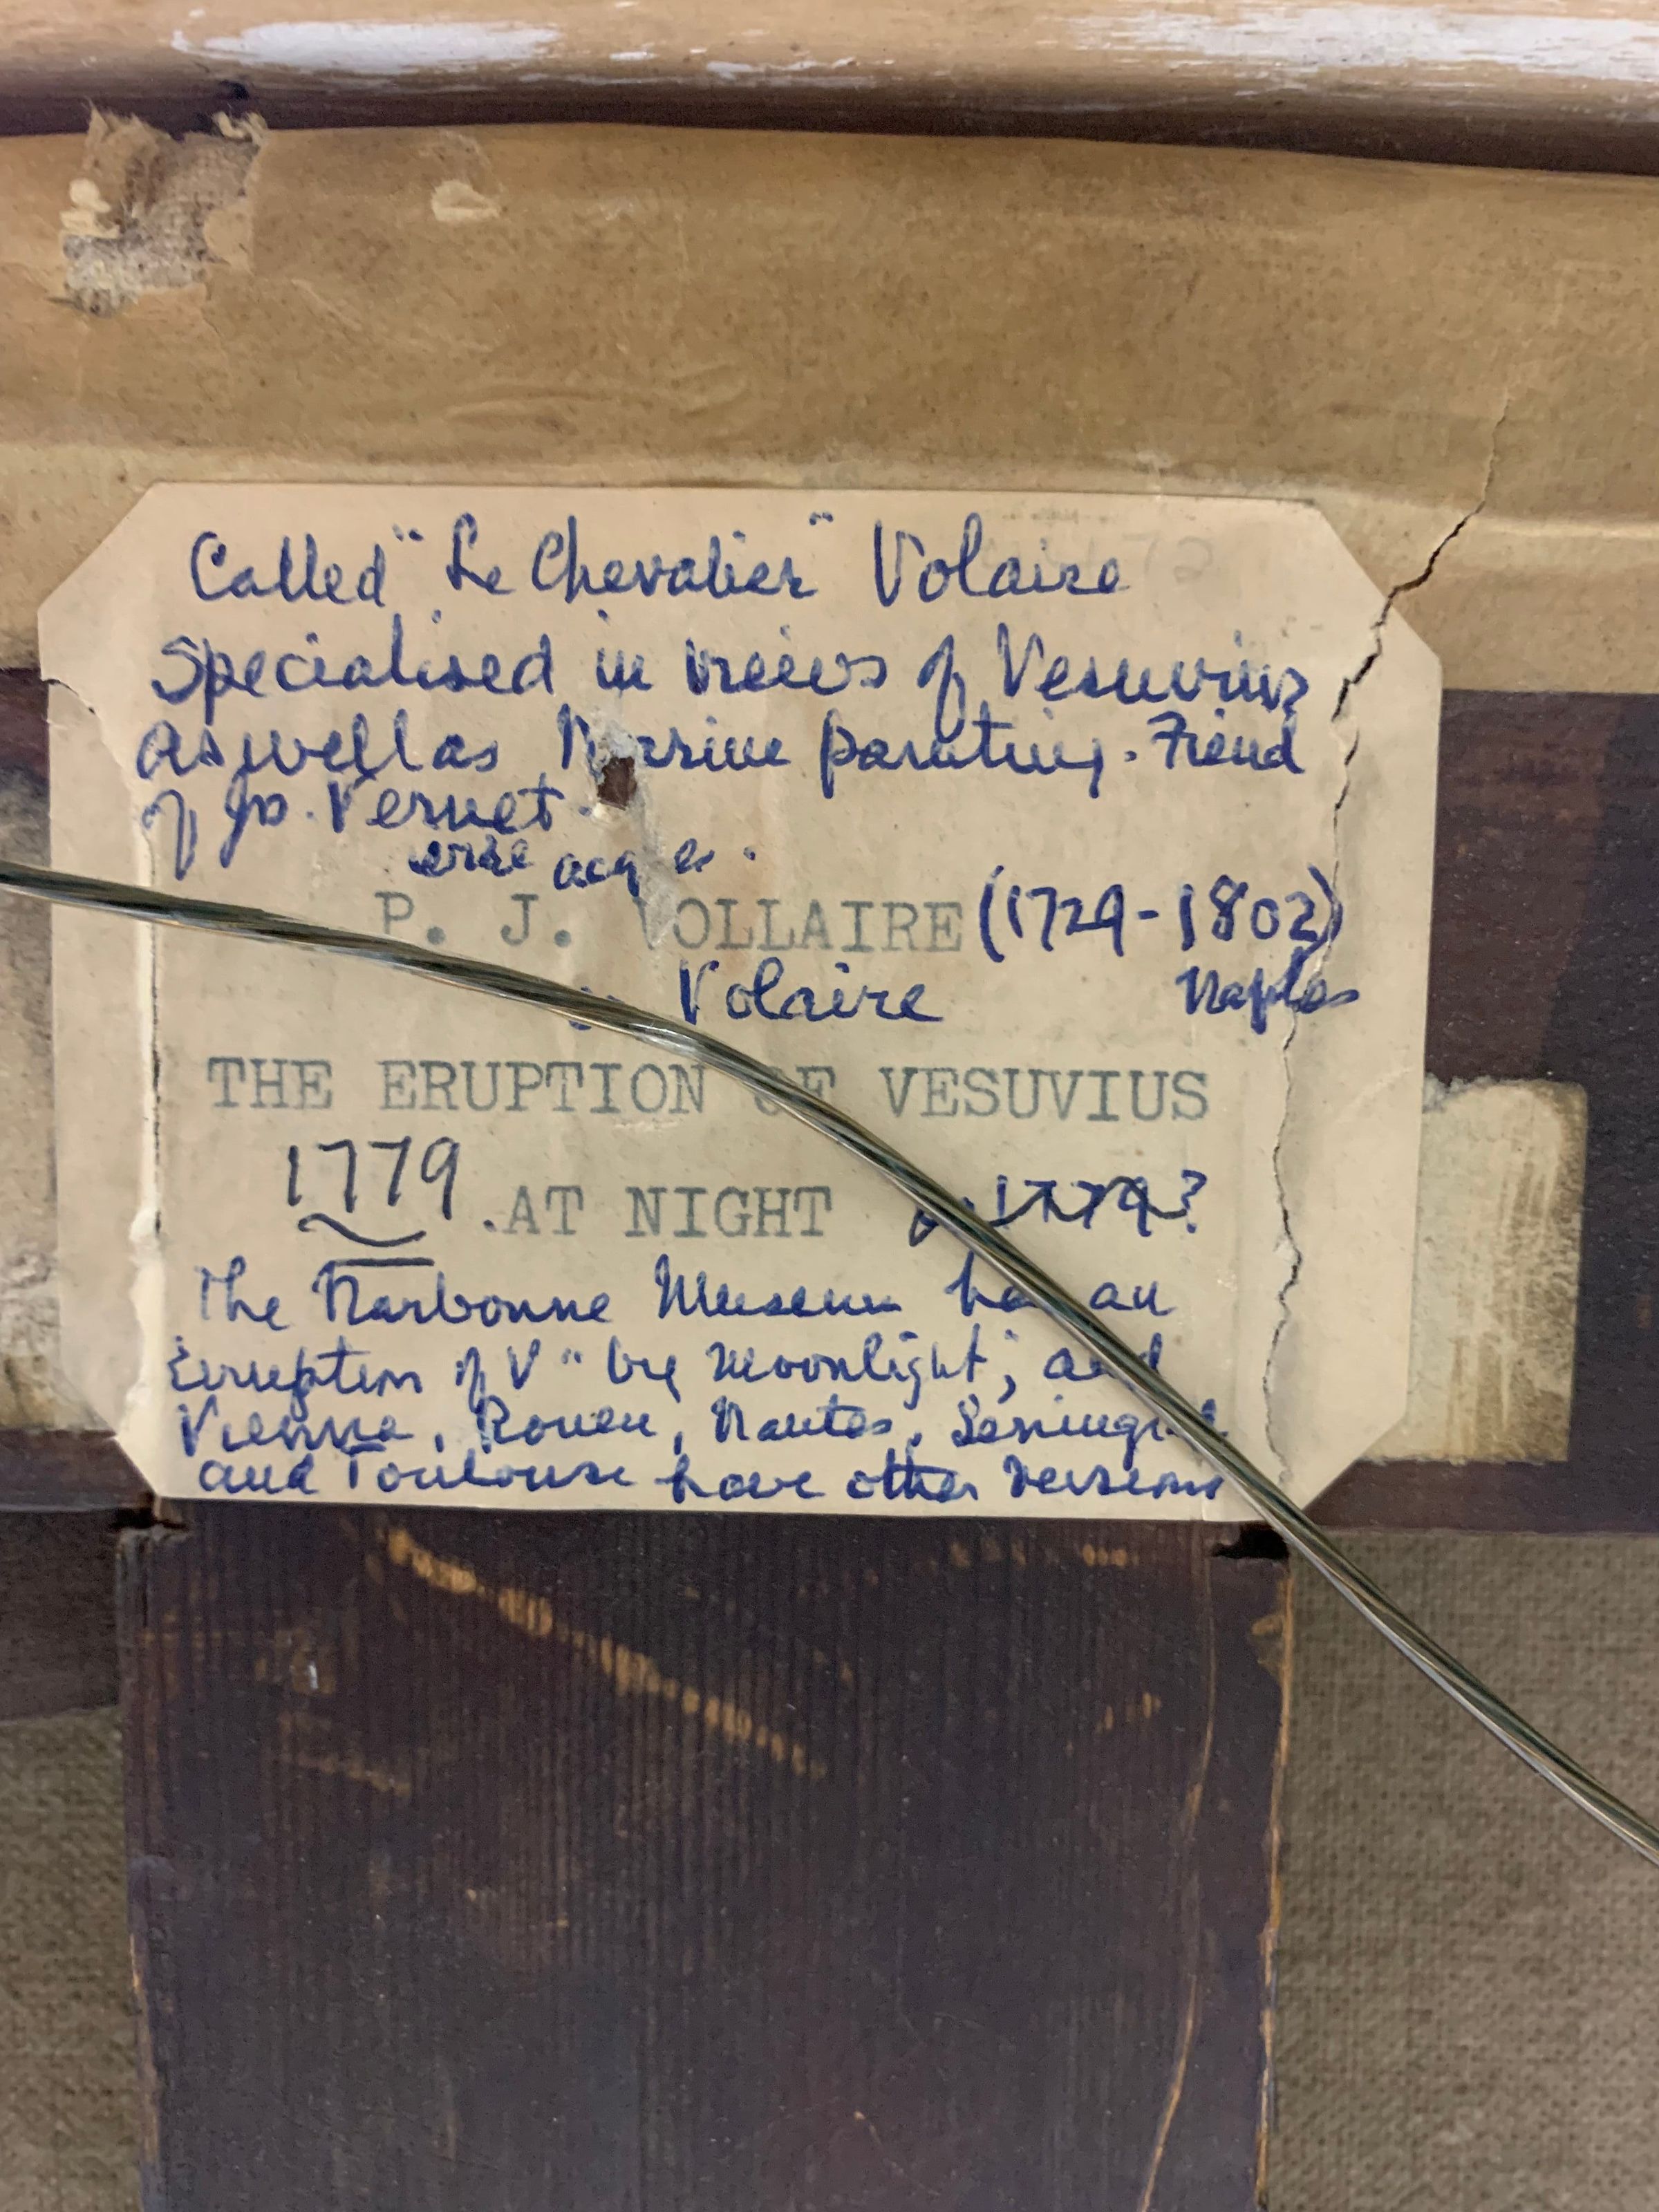 Called "Le Chevalier" Volaire
Specialised in views of Vesuvius
as well as Marine painting. Friend
of Jo. Vernet.
P. J. VOLLAIRE (1729-1802)
Volaire Naples
THE ERUPTION OF VESUVIUS
1779 .AT NIGHT 1779?
The Narbonne Museum has an
Erruption of V" by Moonlight; and
Vienna, Rouen, Nantes, Leningrad
and Toulouse have other versions